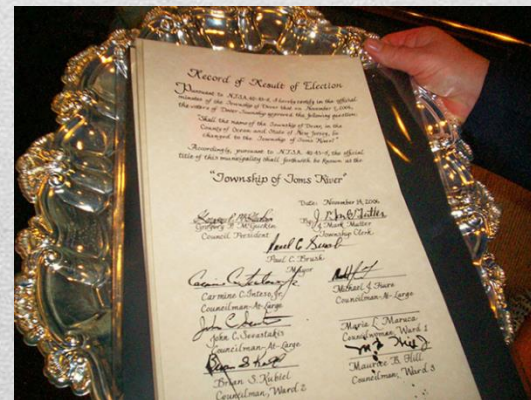 Record of Result of Election
Pursuant to N.J.S.A. 40:43-5, I hereby certify in the official
minutes of the Township of Dover that on November 7, 2006,
the voters of Dover Township approved the following question:
"Shall the name of the Township of Dover, in the
County of Ocean and State of New Jersey, be
changed to the Township of Toms River?"
Accordingly, pursuant to N.J.S.A. 40:43-5, the official
title of this municipality shall forthwith be known as the
"Township of Toms River"
Date: November 14, 2006
Gregory P. McGuckin
Council President
By: J. Mark Mutter
Township Clerk
Paul C. Brush
Paul C. Brush
Mayor
Carmine C. Inteso, Jr.
Councilman-At-Large
Michael J. Fiure
Councilman-At-Large
John C. Sevastakis
Councilman-At-Large
Maria L. Maruca
Councilwoman, Ward 1
Brian S. Kubiel
Brian S. Kubiel
Councilman, Ward 2
Maurice B. Hill
Councilman, Ward 3